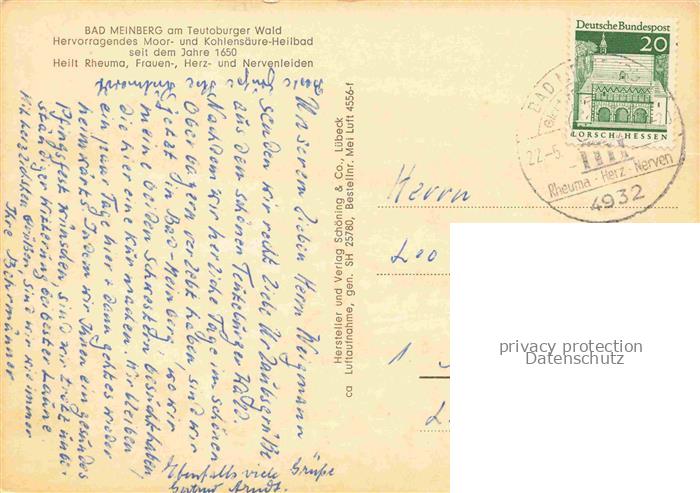 BAD MEINBERG am Teutoburger Wald
Hervorragendes Moor- und Kohlensäure-Heilbad
seit dem Jahre 1650
Heilt Rheuma, Frauen-, Herz- und Nervenleiden
Unserem lieben Herrn
senden wir recht liebe Urlaubsgrüße
aus dem schönen Teutoburger Wald.
Nachdem wir herrliche Tage im schönen
Oberbayern verlebt haben, sind wir
jetzt in Bad-Meinberg, wo wir
meine beiden Schwestern besucht haben,
die hier eine Kur machen. Wir bleiben
ein paar Tage hier + dann geht es wieder
heimwärts. Indem wir Ihnen ein gesundes
Pfingstfest wünschen, sind wir trotz unbe-
ständiger Witterung bei bester Laune.
Mit herzlichsten Grüßen sind wir wie immer
Ihre
Ebenfalls viele Grüße
Gertrud Arndt.
Hersteller und Verlag Schöning & Co., Lübeck
ca Luftaufnahme, gen. SH 25780, Bestellnr. Mei Luft 4556-f
Deutsche Bundespost
20
LORSCH · HESSEN
BAD
22.-5.
Rheuma - Herz - Nerven
4932
Herrn
Leo
1
privacy protection
Datenschutz